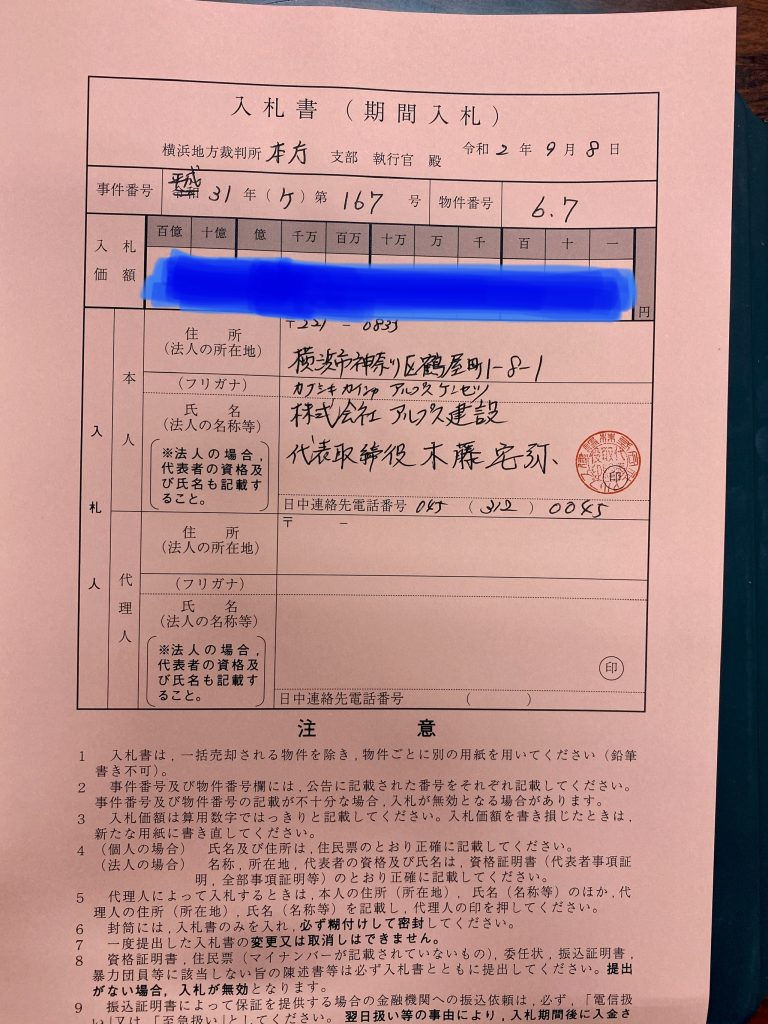 入札書（期間入札）
横浜地方裁判所 本庁 支部 執行官 殿 令和 2 年 9 月 8 日
事件番号 平成 31 年（ケ）第 167 号 物件番号 6.7
入札価額 百億 十億 億 千万 百万 十万 万 千 百 十 一
円
入札人
本人
住所
（法人の所在地）
〒221－0835
横浜市神奈川区鶴屋町1-8-1
（フリガナ） カブシキカイシャ アルプスケンセツ
氏名
（法人の名称等）
株式会社 アルプス建設
代表取締役 木藤
印
※法人の場合，
代表者の資格及
び氏名も記載す
ること。
日中連絡先電話番号 045（312）0045
代理人
住所
（法人の所在地）
〒 －
（フリガナ）
氏名
（法人の名称等）
※法人の場合，
代表者の資格及
び氏名も記載す
ること。
印
日中連絡先電話番号 （ ）
注意
1 入札書は，一括売却される物件を除き，物件ごとに別の用紙を用いてください（鉛筆
書き不可）。
2 事件番号及び物件番号欄には，公告に記載された番号をそれぞれ記載してください。
事件番号及び物件番号の記載が不十分な場合，入札が無効となる場合があります。
3 入札価額は算用数字ではっきりと記載してください。入札価額を書き損じたときは，
新たな用紙に書き直してください。
4 （個人の場合） 氏名及び住所は，住民票のとおり正確に記載してください。
（法人の場合） 名称，所在地，代表者の資格及び氏名は，資格証明書（代表者事項証
明，全部事項証明等）のとおり正確に記載してください。
5 代理人によって入札するときは，本人の住所（所在地），氏名（名称等）のほか，代
理人の住所（所在地），氏名（名称等）を記載し，代理人の印を押してください。
6 封筒には，入札書のみを入れ，必ず糊付けして密封してください。
7 一度提出した入札書の変更又は取消しはできません。
8 資格証明書，住民票（マイナンバーが記載されていないもの），委任状，振込証明書，
暴力団員等に該当しない旨の陳述書等は必ず入札書とともに提出してください。提出
がない場合，入札が無効となります。
9 振込証明書によって保証を提供する場合の金融機関への振込依頼は，必ず，「電信扱
い」又は，「至急扱い」としてください。翌日扱い等の事由により，入札期間後に入金さ